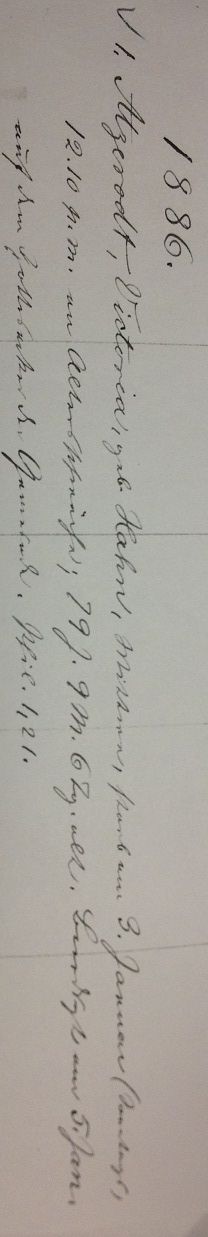 1886.
√ 1. Atzerodt, Victoria, geb. Hahn, Wittwe, starb am 3. Januar (Sonntags,
12.10 p.m. an Altersschwäche; 79 J. 9 M. 6 Tg. alt. Beerdigt am 5. Jan.
auf dem Gottesacker der Gemeinde. Phil. 1,21.